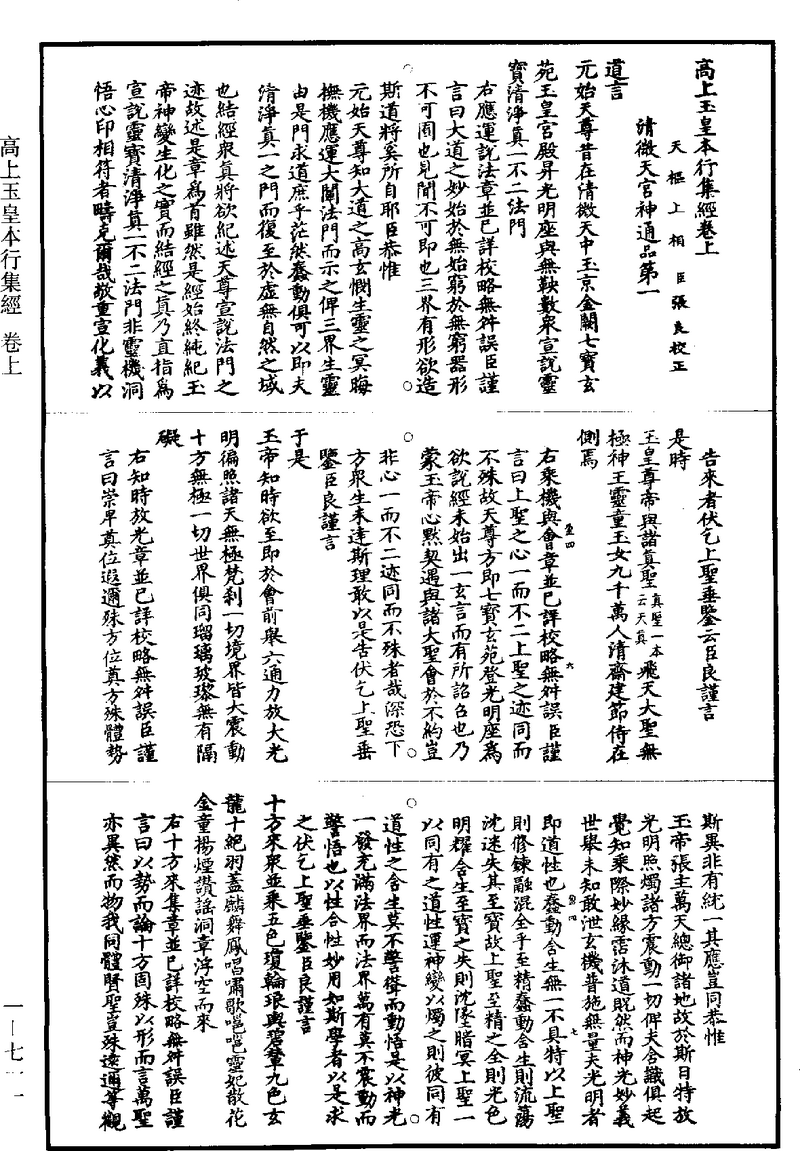 高上玉皇本行集經卷上
天樞上相臣張良校正
清微天宮神通品第一
道言
元始天尊昔在清微天中玉京金闕七寶玄
苑玉皇宮殿昇光明座與無鞅數眾宣說靈
寶清淨真一不二法門
右應運說法章並已詳校略無舛誤臣謹
言曰大道之妙始於無始窮於無窮器形
不可囿也見聞不可即也三界有形欲造
斯道將奚所自耶臣恭惟
元始天尊知大道之高玄憫生靈之冥晦
撫機應運大闡法門而示之俾三界生靈
由是門求道庶乎茫然蠢動俱可以即夫
清淨真一之門而復至於虛無自然之域
也結經眾真將欲紀述天尊宣說法門之
迹故述是章為首雖然是經始終純紀玉
帝神變生化之實而結經之真乃直指為
宣說靈寶清淨真一不二法門非靈機洞
悟心印相符者疇克爾哉敬重宣化義以
告來者伏乞上聖垂鑒云臣良謹言
是時
玉皇尊帝與諸真聖真聖一本云天真飛天大聖無
極神王靈童玉女九千萬人清齋建節侍在
側焉
右乘機與會章並已詳校略無舛誤臣謹
言曰上聖之心一而不二上聖之迹同而
不殊故天尊方即七寶玄苑登光明座為
欲說經未始出一玄言而有所詔召也乃
蒙玉帝心默契遇與諸大聖會於不約豈
非心一而不二迹同而不殊者哉深恐下
方眾生未達斯理敢以是告伏乞上聖垂
鑒臣良謹言
于是
玉帝知時欲至即於會前舉六通力放大光
明徧照諸天無極梵剎一切境界皆大震動
十方無極一切世界俱同瑠璃玻瓈無有隔
礙
右知時放光章並已詳校略無舛誤臣謹
言曰崇卑奠位遐邇殊方位奠方殊體勢
斯異非有統一其應豈同恭惟
玉帝張主萬天總御諸地故於斯日特放
光明照燭諸方震動一切俾夫含識俱起
覺知乘際妙緣霑沐道既然而神光妙義
世舉未知敢泄玄機普施無量夫光明者
即道性也蠢動含生無一不具特以上聖
則修鍊融混全乎至精蠢動含生則流蕩
沈迷失其至寶故上聖至精之全則光色
明耀含生至寶之失則沈墜暗冥上聖一
以同有之道性運神變以燭之則彼同有
道性之含生莫不警荅而動悟是以神光
一發充滿法界而法界萬有莫不震動而
警悟也以性合性妙用如斯學者以是求
之伏乞上聖垂鑒臣良謹言
十方來眾並乘五色瓊輪琅輿碧輦九色玄
龍十絕羽蓋麟舞鳳唱嘯歌嗈嗈靈妃散花
金童揚煙讚謠洞章浮空而來
右十方來集章並已詳校略無舛誤臣謹
言曰以勢而論十方固殊以形而言萬聖
亦異然而物我同體賢聖豈殊遠邇等觀
高上玉皇本行集經 卷上
一—七一一